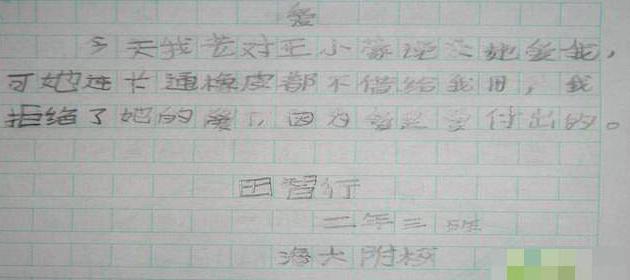 爱
今天我老对王小蒙说她爱我，
可她连卡通橡皮都不借给我用，我
拒绝了她的爱，因为爱是要付出的。
田智行
二年三班
海大附校